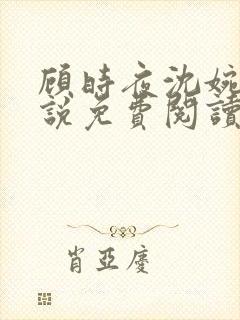 顾時夜沈婉
說免費閱讀
肖亞慶